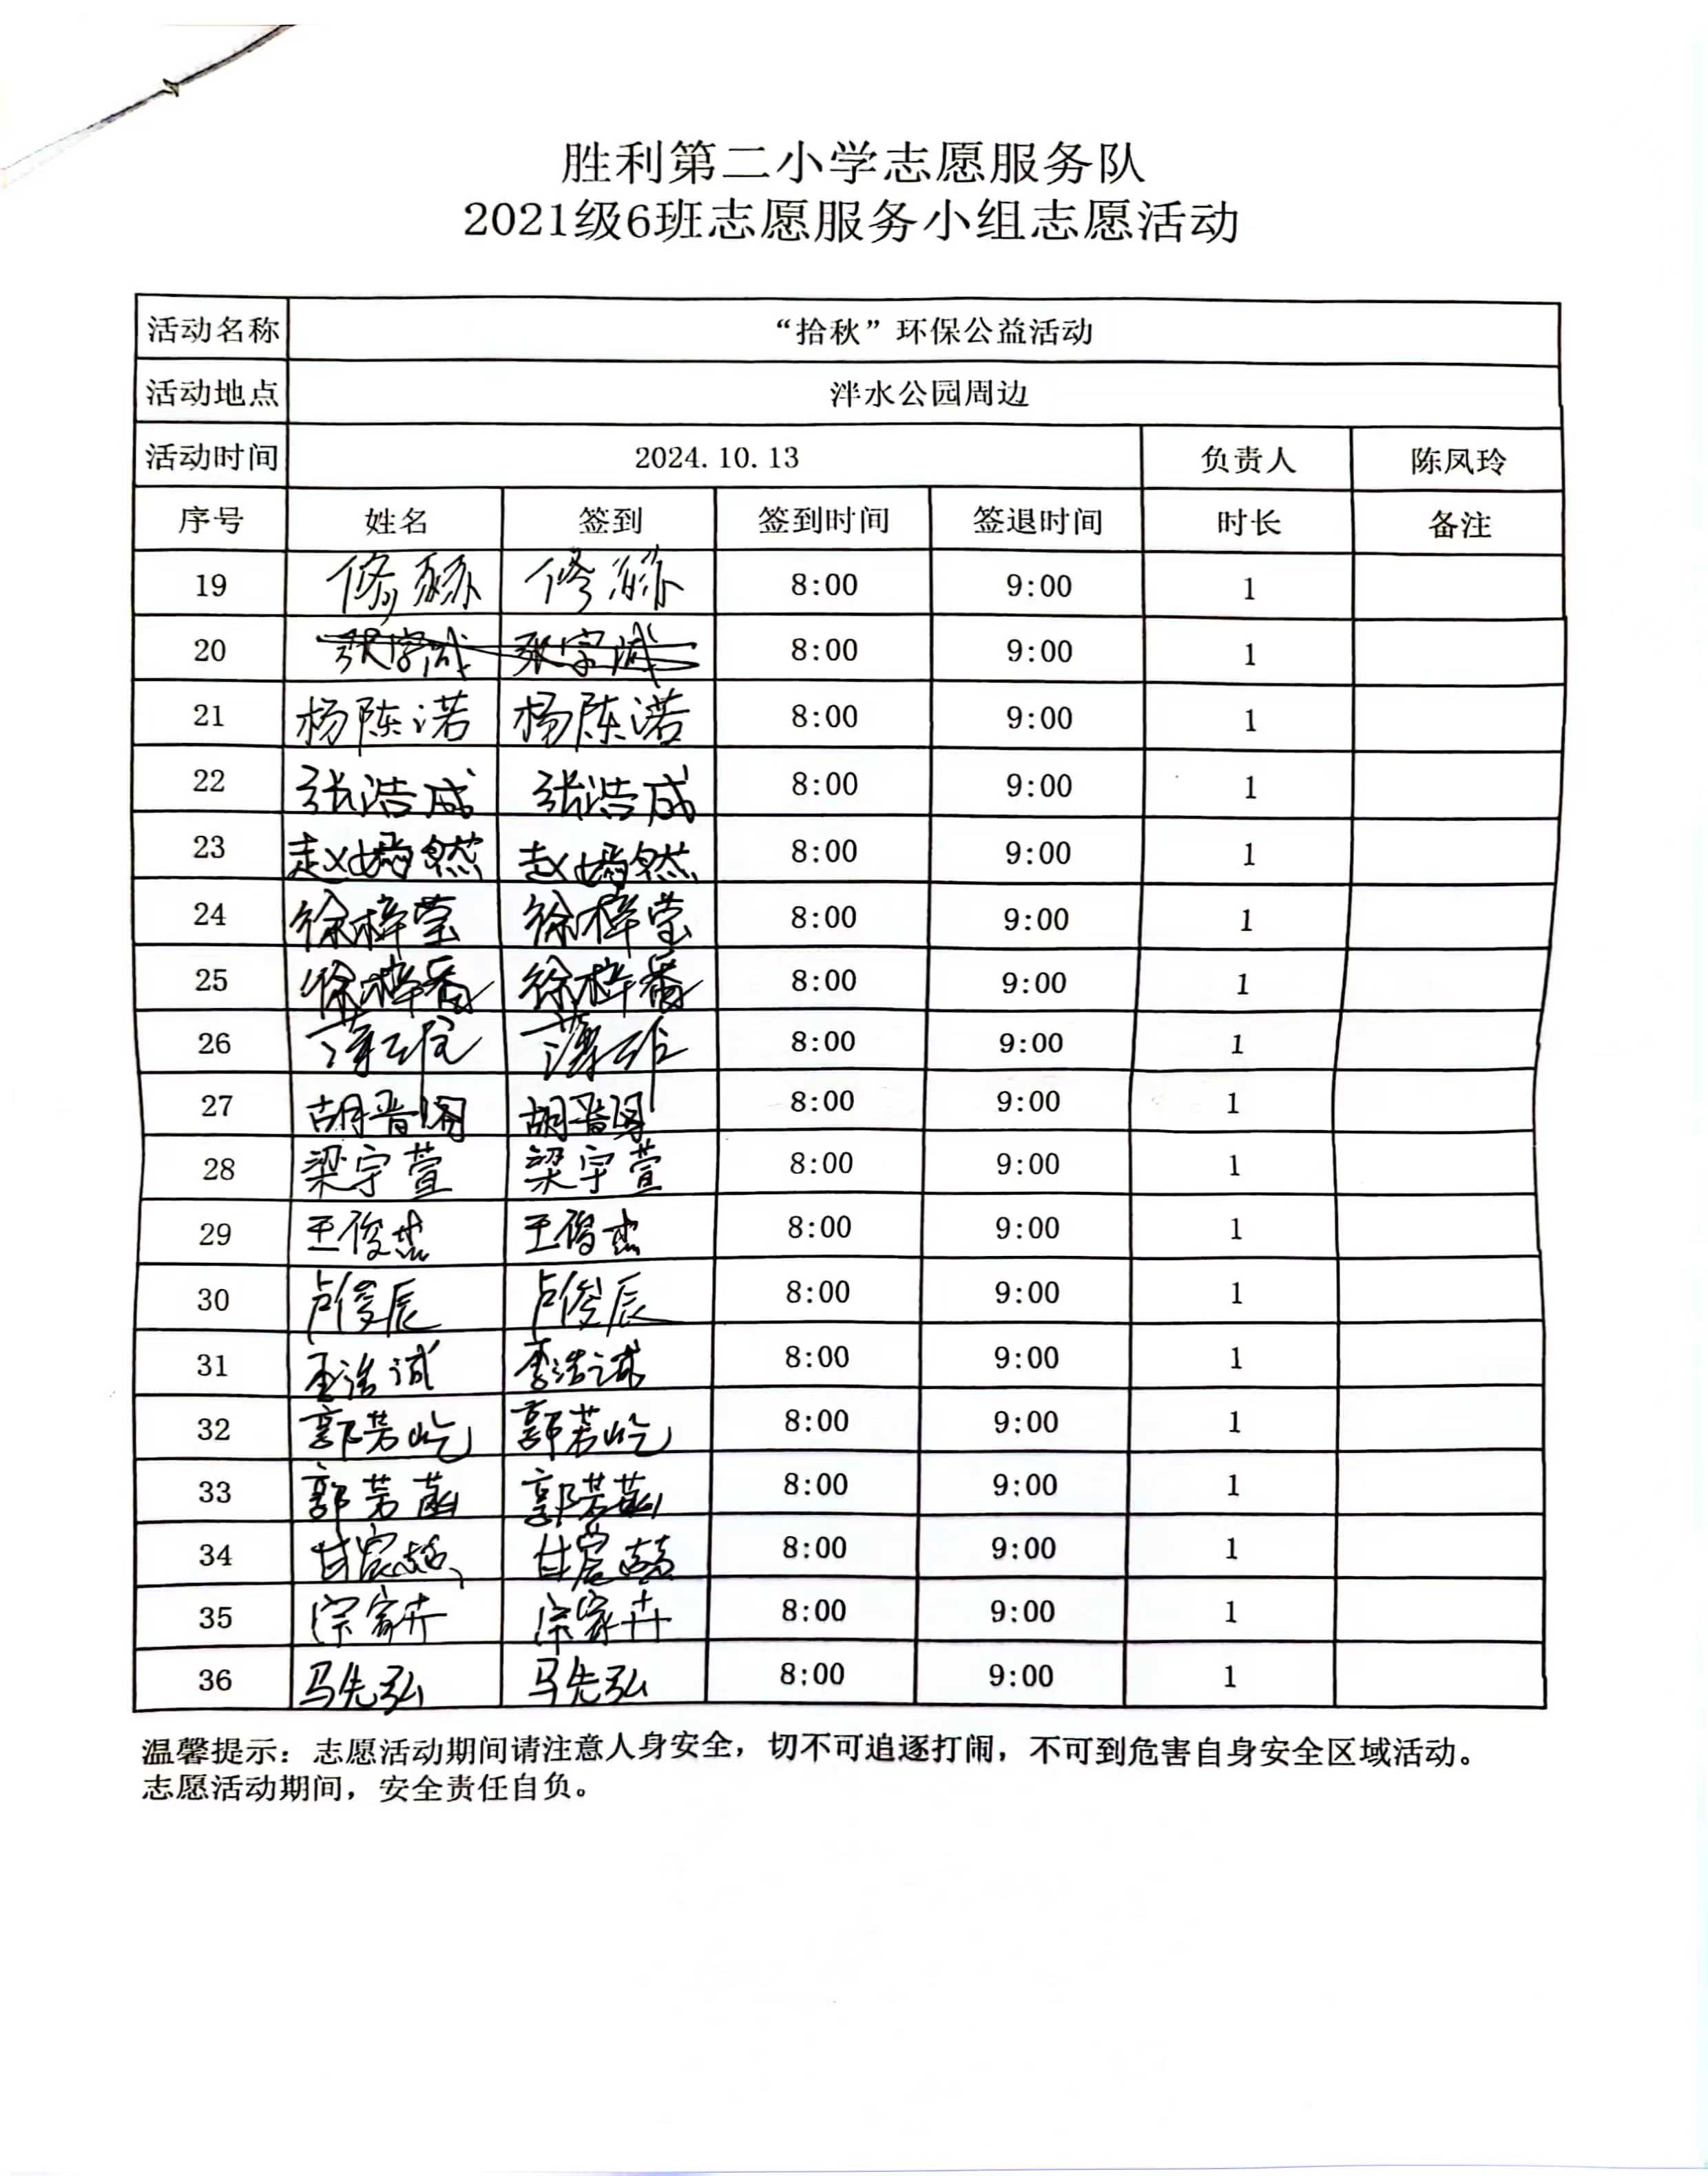 胜利第二小学志愿服务队
2021级6班志愿服务小组志愿活动
活动名称 “拾秋”环保公益活动
活动地点 泮水公园周边
活动时间 2024.10.13 负责人 陈凤玲
序号 姓名 签到 签到时间 签退时间 时长 备注
19 8:00 9:00 1
20 8:00 9:00 1
21 杨陈诺 杨陈诺 8:00 9:00 1
22 张浩成 张浩成 8:00 9:00 1
23 赵嫣然 赵嫣然 8:00 9:00 1
24 徐梓莹 徐梓莹 8:00 9:00 1
25 徐梓 徐梓 8:00 9:00 1
26 8:00 9:00 1
27 胡晋 胡晋 8:00 9:00 1
28 梁宇萱 梁宇萱 8:00 9:00 1
29 王俊杰 王俊杰 8:00 9:00 1
30 卢俊辰 卢俊辰 8:00 9:00 1
31 浩诚 李浩诚 8:00 9:00 1
32 郭芳屹 郭若屹 8:00 9:00 1
33 郭芳菡 郭若菡 8:00 9:00 1
34 甘宸 甘宸 8:00 9:00 1
35 宗家卉 宗家卉 8:00 9:00 1
36 马先弘 马先弘 8:00 9:00 1
温馨提示：志愿活动期间请注意人身安全，切不可追逐打闹，不可到危害自身安全区域活动。
志愿活动期间，安全责任自负。